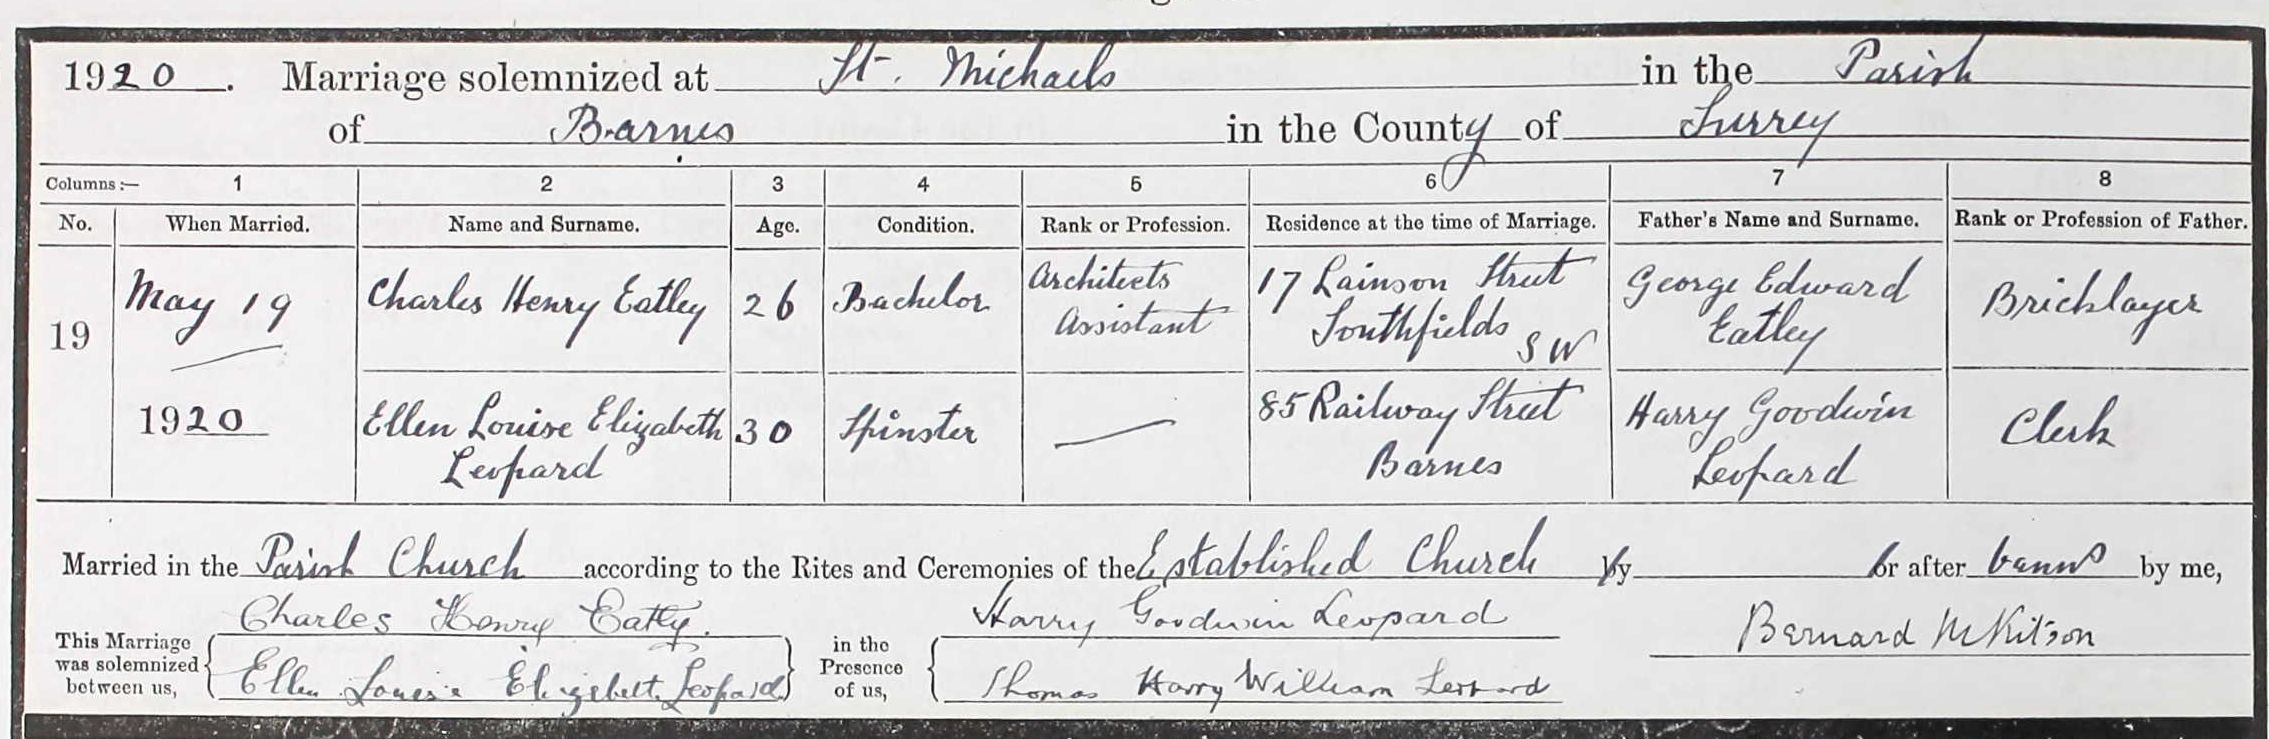 1920. Marriage solemnized at St. Michaels in the Parish
of Barnes in the County of Surrey
Columns:— 1 2 3 4 5 6 7 8
No. When Married. Name and Surname. Age. Condition. Rank or Profession. Residence at the time of Marriage. Father's Name and Surname. Rank or Profession of Father.
19 May 19 Charles Henry Eatley 26 Bachelor Architects Assistant 17 Lainson Street Southfields SW George Edward Eatley Bricklayer
1920 Ellen Louise Elizabeth Leopard 30 Spinster — 85 Railway Street Barnes Harry Goodwin Leopard Clerk
Married in the Parish Church according to the Rites and Ceremonies of the Established Church by or after banns by me,
This Marriage was solemnized between us, Charles Henry Eatley. in the Presence of us, Harry Goodwin Leopard Bernard McKitson
Ellen Louise Elizabeth Leopard Thomas Harry William Leopard